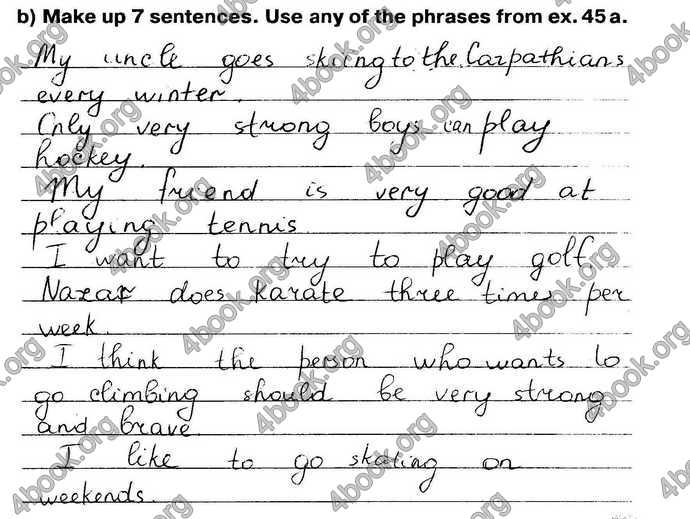 b) Make up 7 sentences. Use any of the phrases from ex. 45 a.
My uncle goes skiing to the Carpathians
every winter.
Only very strong boys can play
hockey.
My friend is very good at
playing tennis
I want to try to play golf.
Nazar does karate three times per
week.
I think the person who wants to
go climbing should be very strong
and brave.
I like to go skating on
weekends.
4book.org